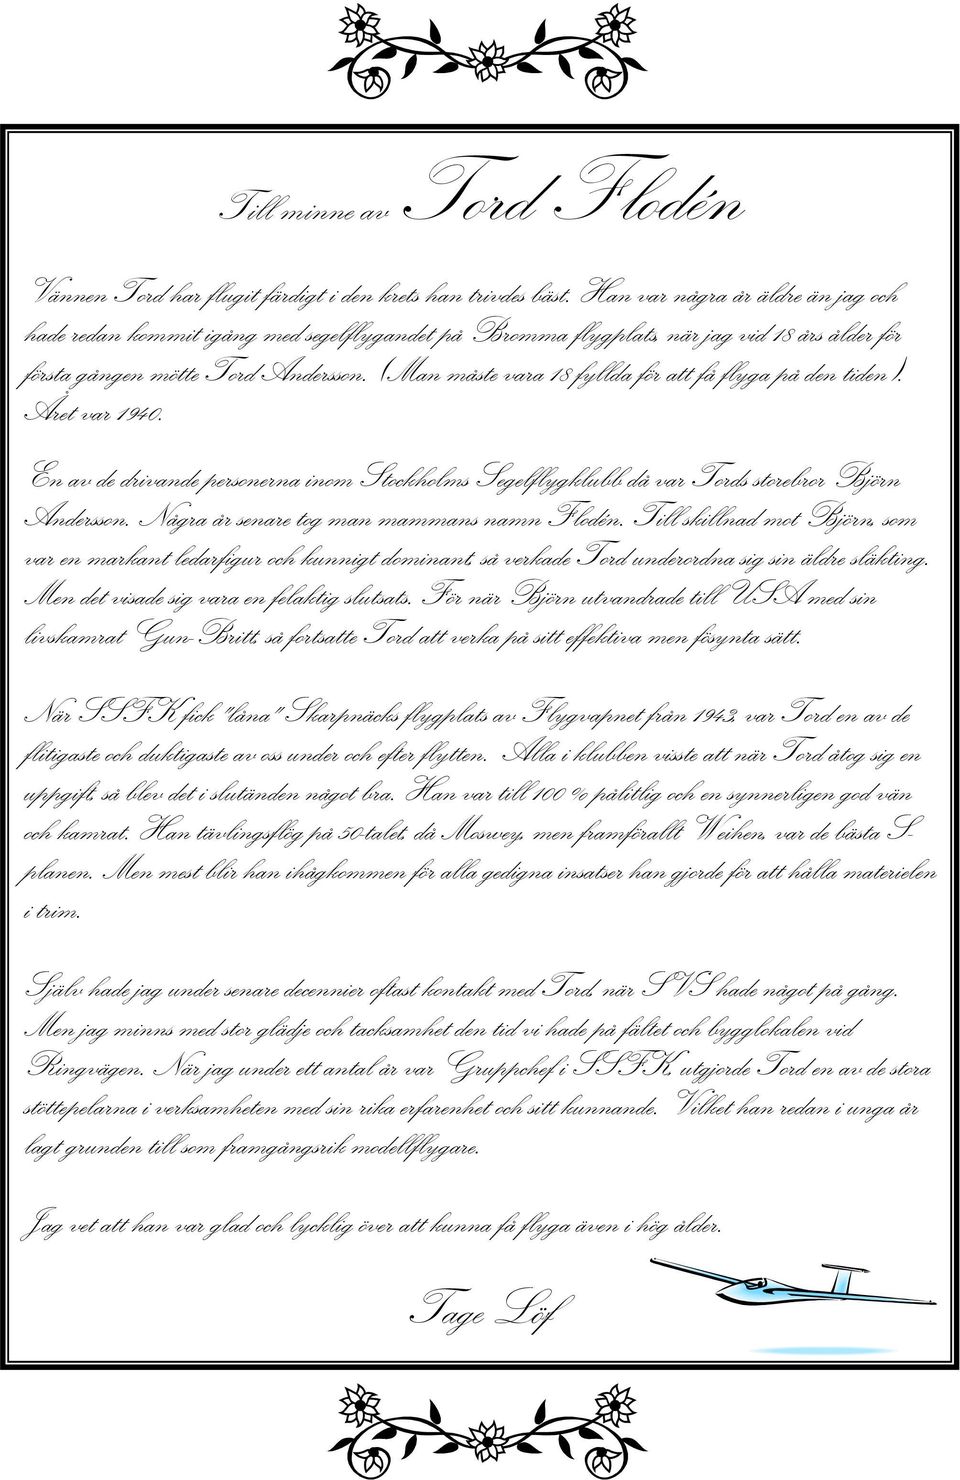 Till minne av Tord Flodén
Vännen Tord har flugit färdigt i den krets han trivdes bäst. Han var några år äldre än jag och
hade redan kommit igång med segelflygandet på Bromma flygplats, när jag vid 18 års ålder för
första gången mötte Tord Andersson. (Man måste vara 18 fyllda för att få flyga på den tiden).
Året var 1940.
En av de drivande personerna inom Stockholms Segelflygklubb då var Tords storebror Björn
Andersson. Några år senare tog man mammans namn Flodén. Till skillnad mot Björn, som
var en markant ledarfigur och kunnigt dominant, så verkade Tord underordna sig sin äldre släkting.
Men det visade sig vara en felaktig slutsats. För när Björn utvandrade till USA med sin
livskamrat Gun-Britt, så fortsatte Tord att verka på sitt effektiva men fösynta sätt.
När SSFK fick "låna" Skarpnäcks flygplats av Flygvapnet från 1943, var Tord en av de
flitigaste och duktigaste av oss under och efter flytten. Alla i klubben visste att när Tord åtog sig en
uppgift, så blev det i slutänden något bra. Han var till 100 % pålitlig och en synnerligen god vän
och kamrat. Han tävlingsflög på 50-talet, då Moswey, men framförallt Weihen, var de bästa S-
planen. Men mest blir han ihågkommen för alla gedigna insatser han gjorde för att hålla materielen
i trim.
Själv hade jag under senare decennier oftast kontakt med Tord, när SVS hade något på gång.
Men jag minns med stor glädje och tacksamhet den tid vi hade på fältet och bygglokalen vid
Ringvägen. När jag under ett antal år var Gruppchef i SSFK, utgjorde Tord en av de stora
stöttepelarna i verksamheten med sin rika erfarenhet och sitt kunnande. Vilket han redan i unga år
lagt grunden till som framgångsrik modellflygare.
Jag vet att han var glad och lycklig över att kunna få flyga även i hög ålder.
Tage Löf